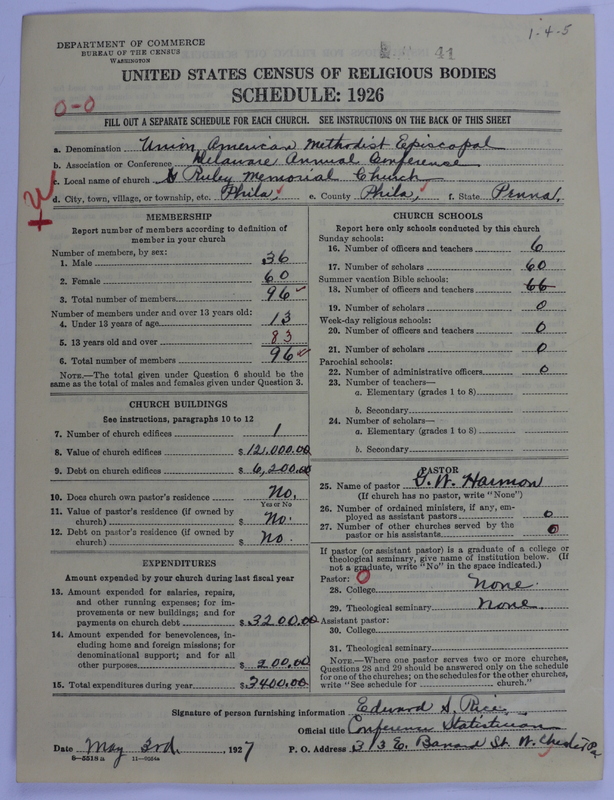 1-4-5
DEPARTMENT OF COMMERCE
BUREAU OF THE CENSUS
WASHINGTON
41
UNITED STATES CENSUS OF RELIGIOUS BODIES
SCHEDULE: 1926
0-0
FILL OUT A SEPARATE SCHEDULE FOR EACH CHURCH. SEE INSTRUCTIONS ON THE BACK OF THIS SHEET
a. Denomination Union American Methodist Episcopal
b. Association or Conference Delaware Annual Conference
c. Local name of church Ruley Memorial Church
d. City, town, village, or township, etc. Phila, e. County Phila, f. State Penna.
MEMBERSHIP
Report number of members according to definition of
member in your church
Number of members, by sex:
1. Male 36
2. Female 60
3. Total number of members 96
Number of members under and over 13 years old:
4. Under 13 years of age 13
5. 13 years old and over 83
6. Total number of members 96
NOTE.—The total given under Question 6 should be
the same as the total of males and females given under Question 3.
CHURCH BUILDINGS
See instructions, paragraphs 10 to 12
7. Number of church edifices 1
8. Value of church edifices $12,000.00
9. Debt on church edifices $6,200.00
10. Does church own pastor's residence No.
Yes or No
11. Value of pastor's residence (if owned by
church) $ No.
12. Debt on pastor's residence (if owned by
church) $ No.
EXPENDITURES
Amount expended by your church during last fiscal year
13. Amount expended for salaries, repairs,
and other running expenses; for im-
provements or new buildings; and for
payments on church debt $3200.00
14. Amount expended for benevolences, in-
cluding home and foreign missions; for
denominational support; and for all
other purposes $200.00
15. Total expenditures during year $3400.00
CHURCH SCHOOLS
Report here only schools conducted by this church
Sunday schools:
16. Number of officers and teachers 6
17. Number of scholars 60
Summer vacation Bible schools:
18. Number of officers and teachers 66
19. Number of scholars 0
Week-day religious schools:
20. Number of officers and teachers 0
21. Number of scholars 0
Parochial schools:
22. Number of administrative officers 0
23. Number of teachers—
a. Elementary (grades 1 to 8)
b. Secondary
24. Number of scholars—
a. Elementary (grades 1 to 8)
b. Secondary
PASTOR
25. Name of pastor G. W. Harmon
(If church has no pastor, write "None")
26. Number of ordained ministers, if any, em-
ployed as assistant pastors 0
27. Number of other churches served by the
pastor or his assistants 0
If pastor (or assistant pastor) is a graduate of a college or
theological seminary, give name of institution below. (If
not a graduate, write "No" in the space indicated.)
Pastor: 0
28. College None.
29. Theological seminary None
Assistant pastor:
30. College
31. Theological seminary
NOTE.—Where one pastor serves two or more churches,
Questions 28 and 29 should be answered only on the schedule
for one of the churches; on the schedules for the other churches,
write "See schedule for church."
Signature of person furnishing information Edward S. Rice
Official title Conference Statistician
Date May 3rd, 1927 P. O. Address 313 E. Barnard St. W. Chester Pa
8-5518a 11-9984a